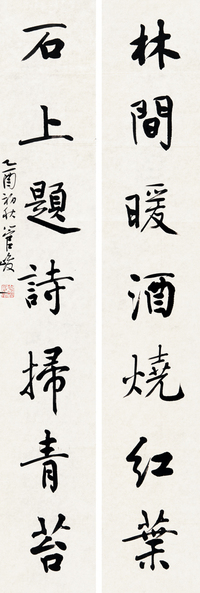 林間暖酒燒紅葉
石上題詩掃青苔
乙酉初秋管峻